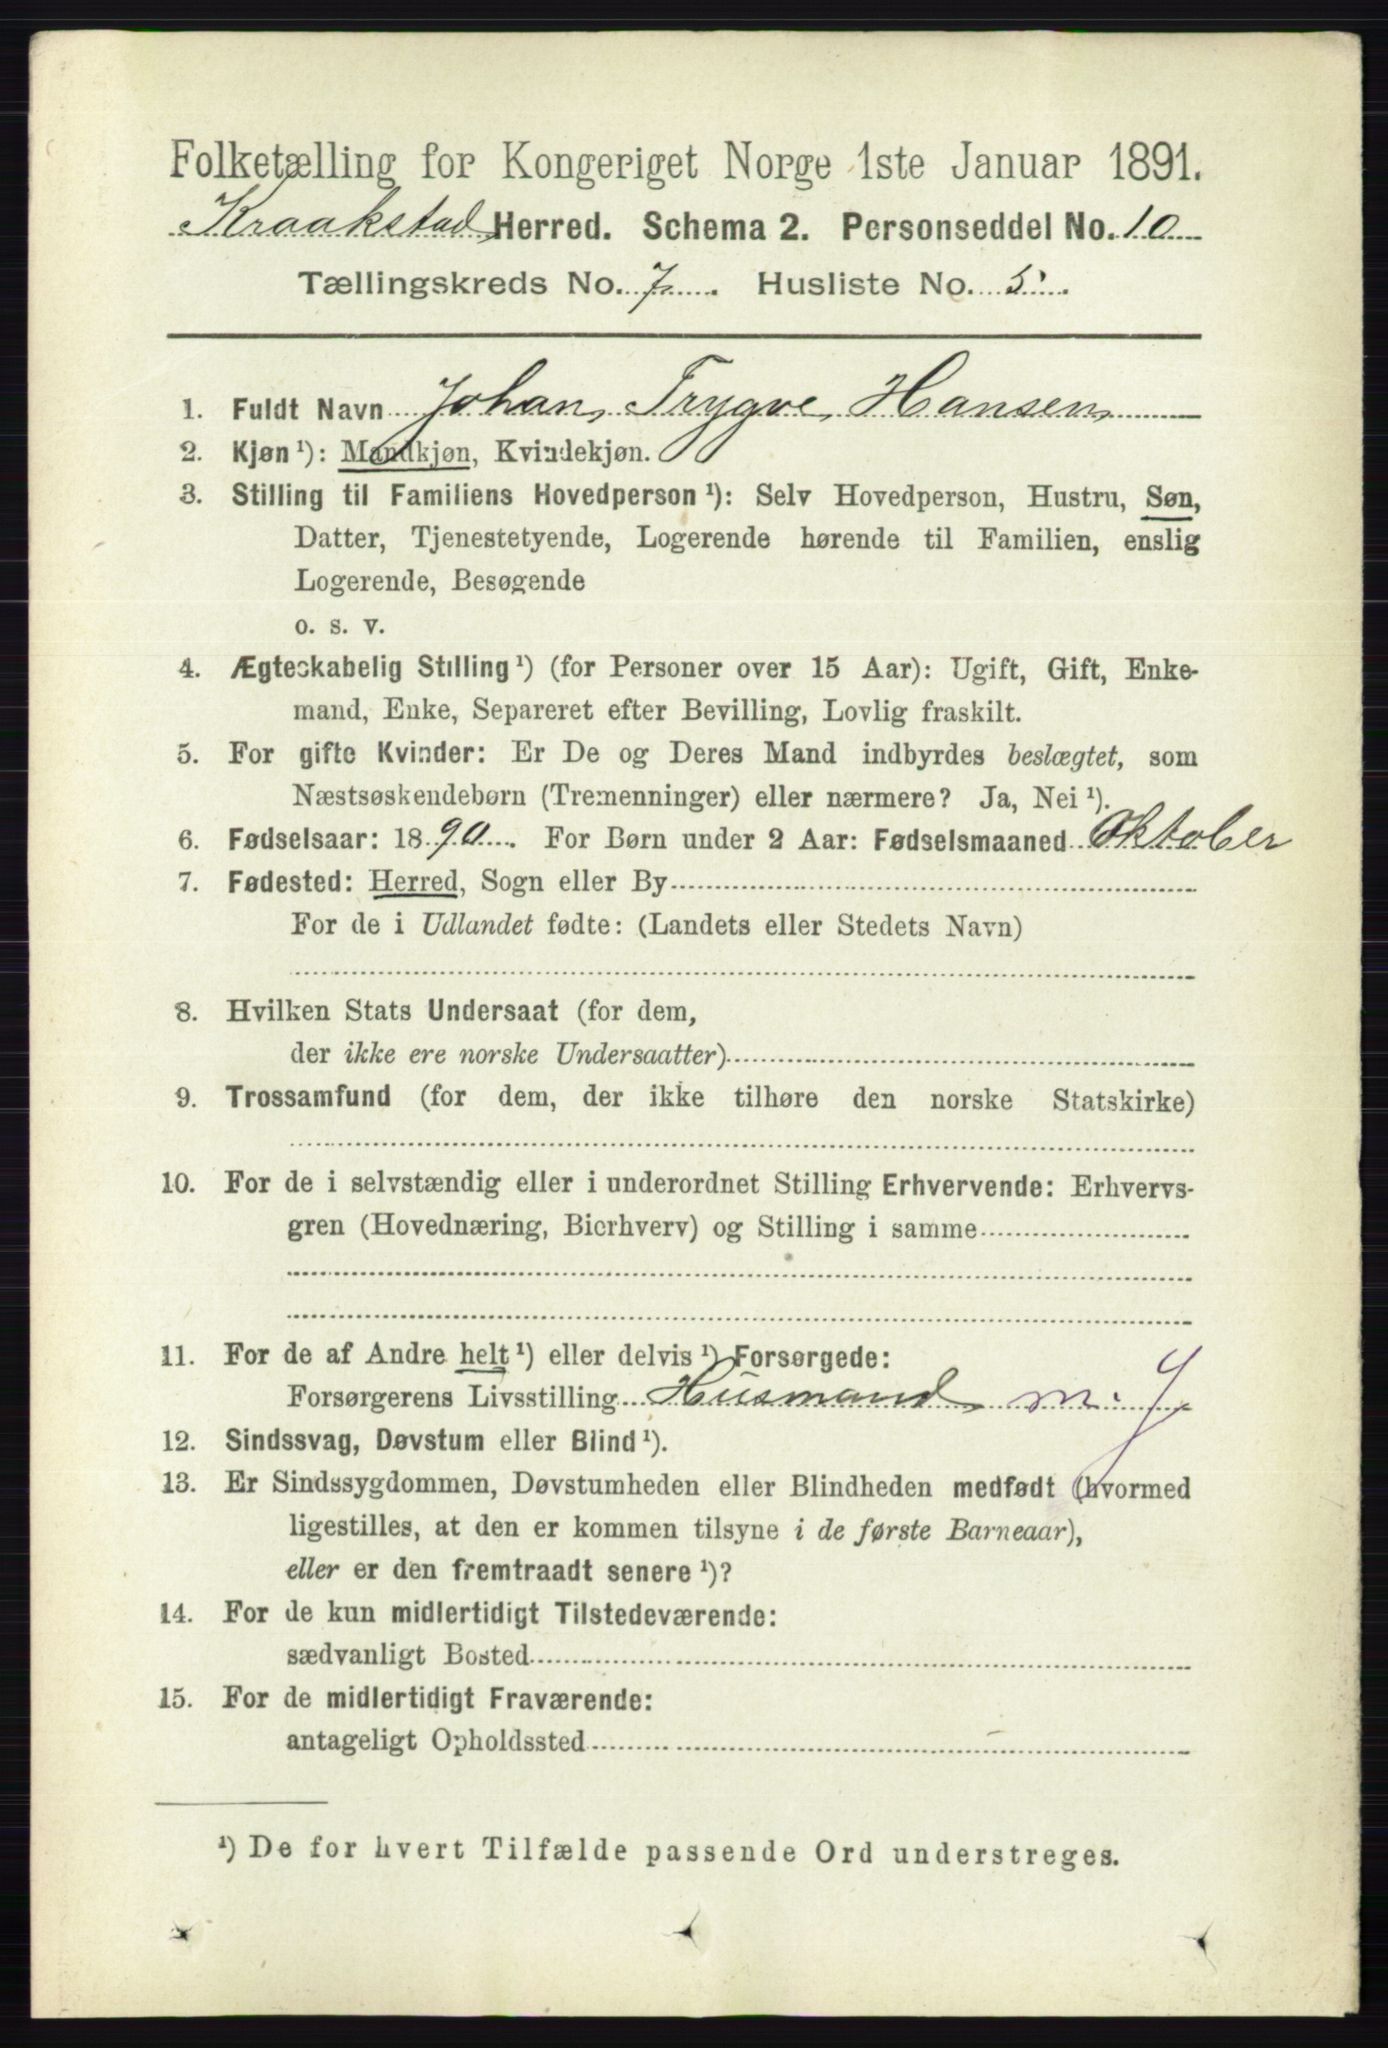 Folketælling for Kongeriget Norge 1ste Januar 1891.
Kraakstad Herred. Schema 2. Personseddel No. 10
Tællingskreds No. 7. Husliste No. 5.
1. Fuldt Navn Johan Trygve Hansen
2. Kjøn¹): Mandkjøn, Kvindekjøn.
3. Stilling til Familiens Hovedperson¹): Selv Hovedperson, Hustru, Søn,
Datter, Tjenestetyende, Logerende hørende til Familien, enslig
Logerende, Besøgende
o. s. v.
4. Ægteskabelig Stilling¹) (for Personer over 15 Aar): Ugift, Gift, Enke-
mand, Enke, Separeret efter Bevilling, Lovlig fraskilt.
5. For gifte Kvinder: Er De og Deres Mand indbyrdes beslægtet, som
Næstsøskendebørn (Tremenninger) eller nærmere? Ja, Nei¹).
6. Fødselsaar: 1890. For Børn under 2 Aar: Fødselsmaaned Oktober
7. Fødested: Herred, Sogn eller By
For de i Udlandet fødte: (Landets eller Stedets Navn)
8. Hvilken Stats Undersaat (for dem,
der ikke ere norske Undersaatter)
9. Trossamfund (for dem, der ikke tilhøre den norske Statskirke)
10. For de i selvstændig eller i underordnet Stilling Erhvervende: Erhvervs-
gren (Hovednæring, Bierhverv) og Stilling i samme
11. For de af Andre helt¹) eller delvis¹) Forsørgede:
Forsørgerens Livsstilling Husmand m. J
12. Sindssvag, Døvstum eller Blind¹).
13. Er Sindssygdommen, Døvstumheden eller Blindheden medfødt (hvormed
ligestilles, at den er kommen tilsyne i de første Barneaar),
eller er den fremtraadt senere¹)?
14. For de kun midlertidigt Tilstedeværende:
sædvanligt Bosted
15. For de midlertidigt Fraværende:
antageligt Opholdssted
¹) De for hvert Tilfælde passende Ord understreges.